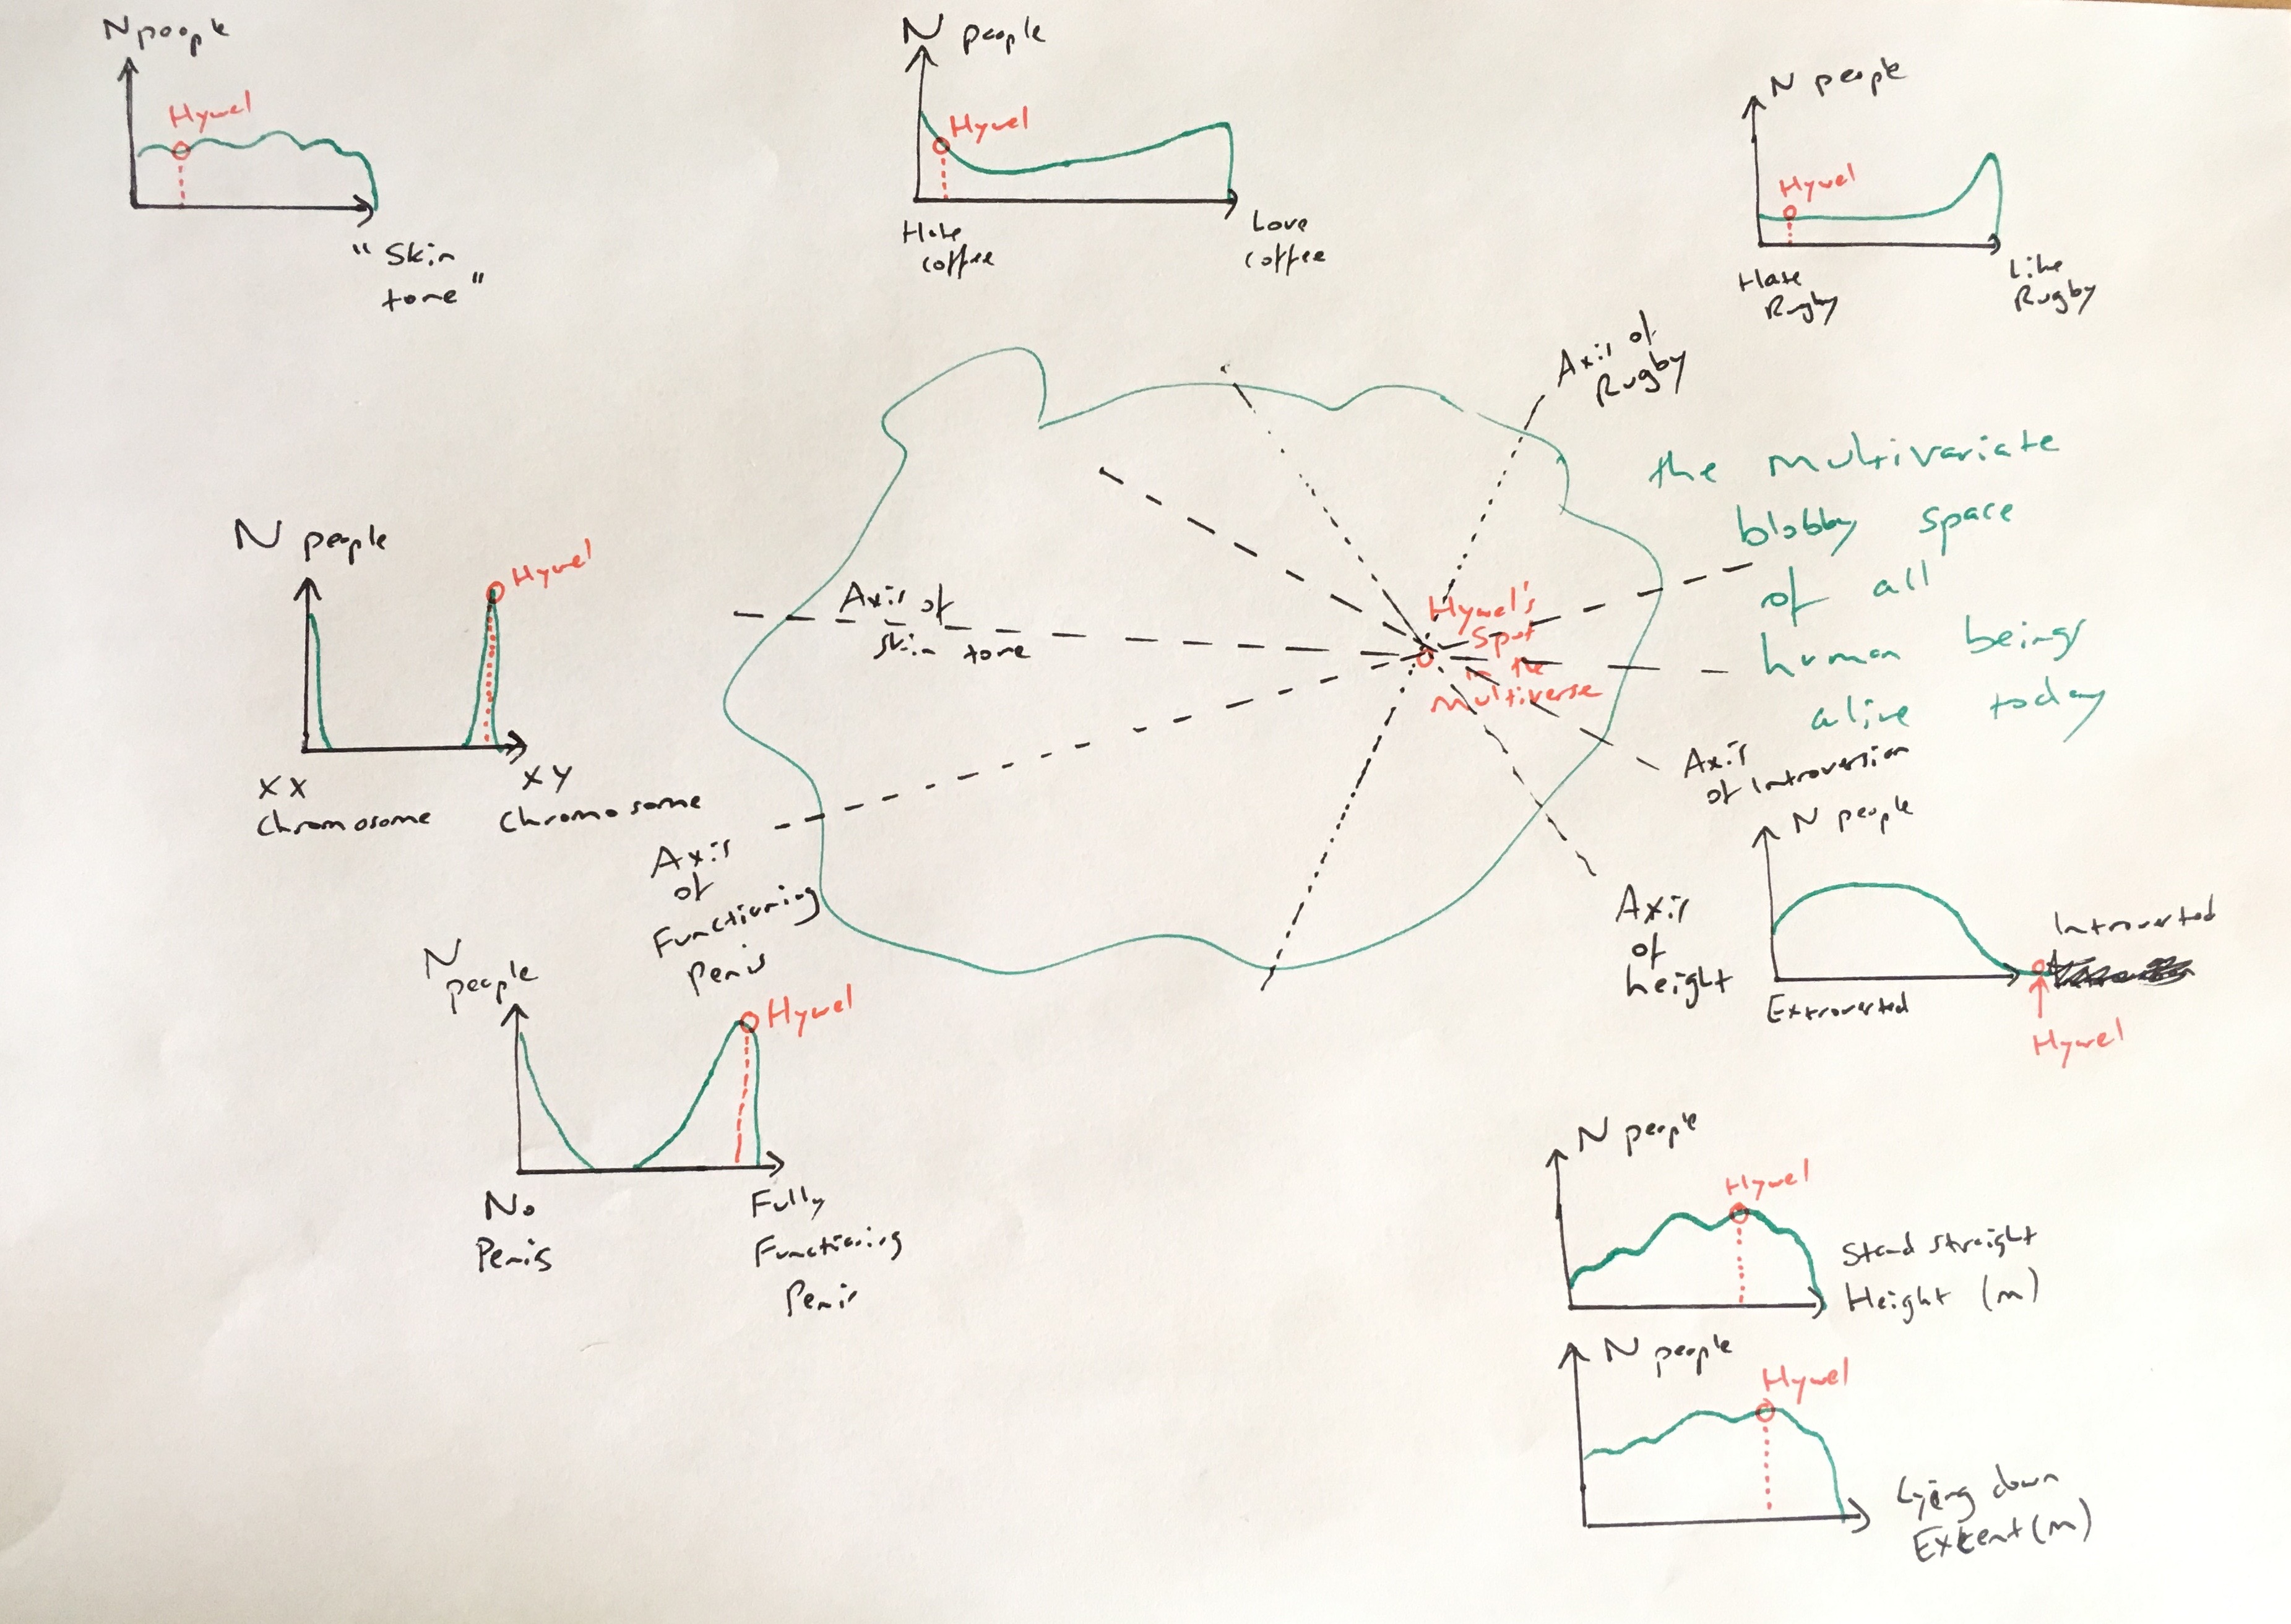 N people
Hywel
"Skin
tone"
N people
Hywel
Hate
coffee
Love
coffee
N people
Hywel
Hate
Rugby
Like
Rugby
Axis of
Rugby
the multivariate
blobby space
of all
human beings
alive today
N people
Hywel
XX
Chromosome
XY
Chromosome
Axis of
skin tone
Hywel's
Spot
in the
multiverse
Axis
of Introversion
N people
Extroverted
Introverted
Hywel
Axis
of
Functioning
penis
N
people
Hywel
No
Penis
Fully
Functioning
Penis
Axis
of
height
N people
Hywel
Stand straight
Height (m)
N people
Hywel
Lying down
Extent (m)